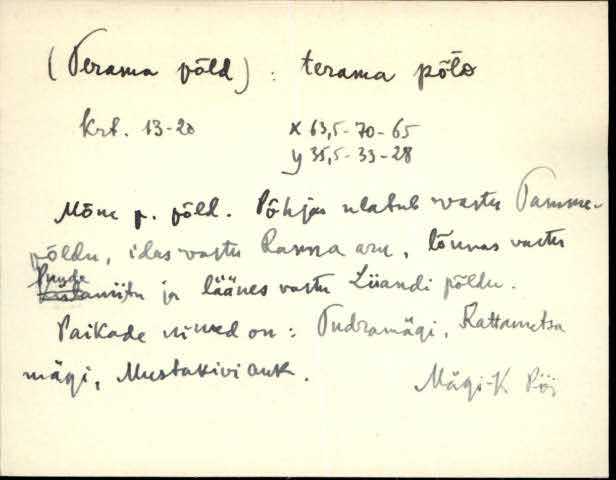 (Terama põld) : terama põlo
krt. 13-20 x 63,5-70-65
y 35,5-33-28
Mõne p. põld. Põhjas ulatub vastu Tamme-
põldu, idas vastu Ranna aru, lõunas vastu
Puude
niitu ja läänes vastu Liiandi põldu.
Paikade nimed on: Pudramägi, Rattametsa
mägi, Mustakivi auk.
Mägi-K Pöi